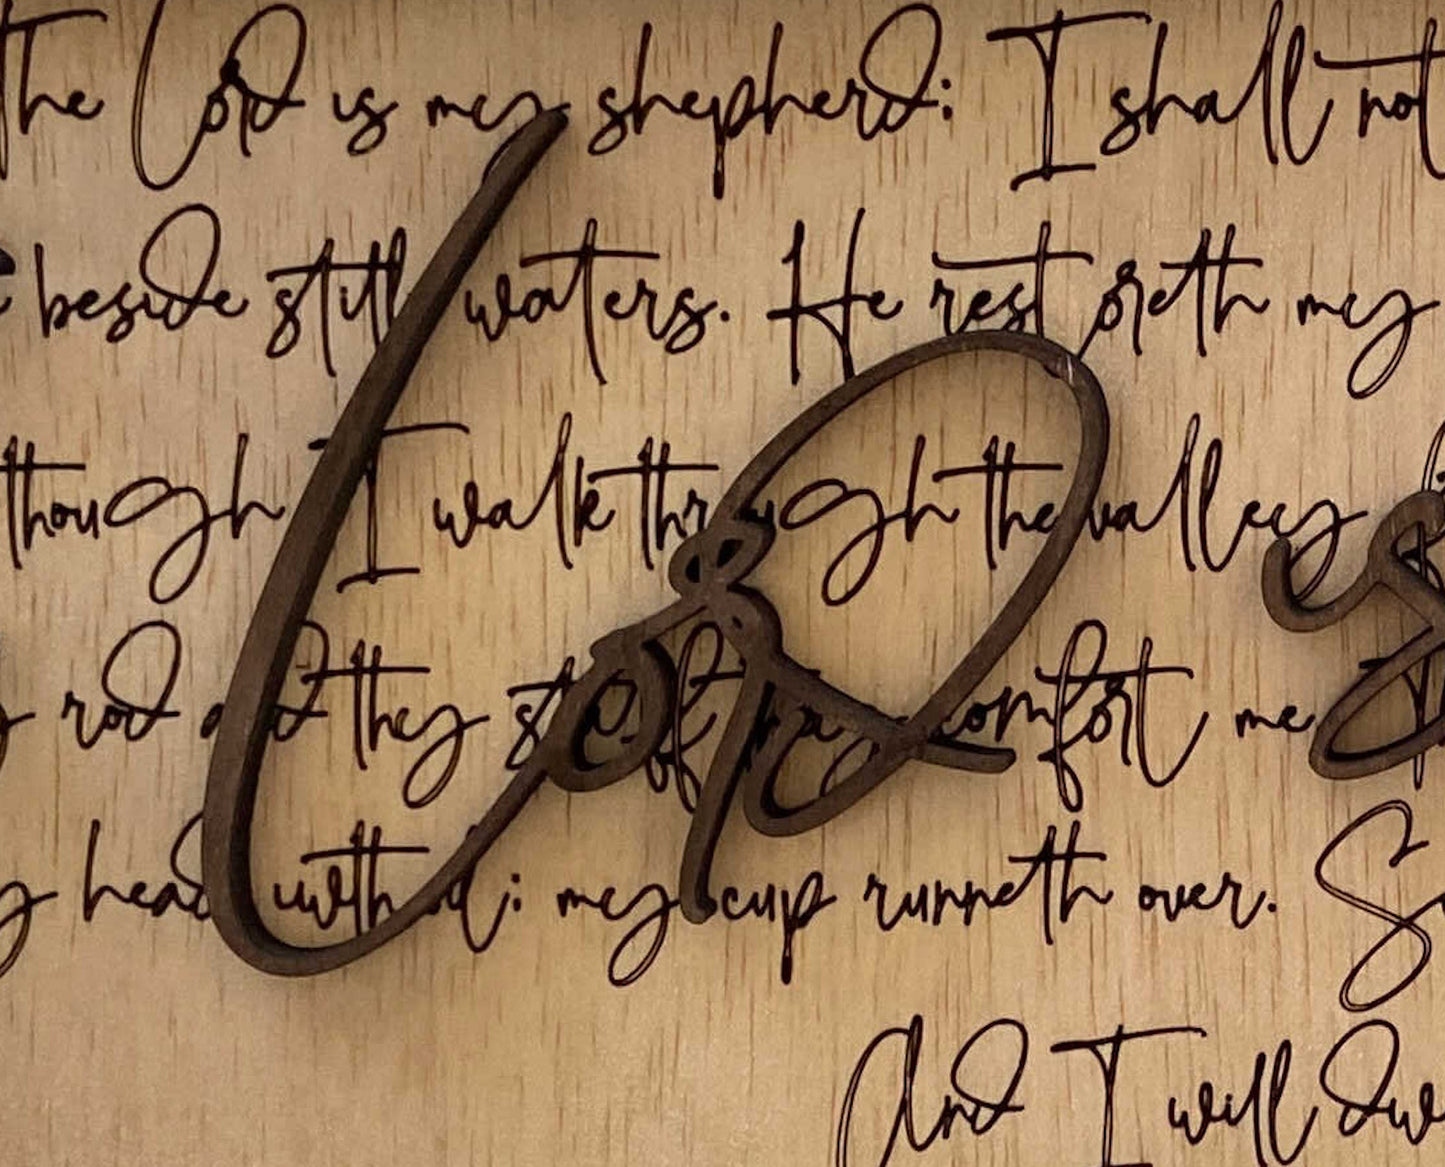 the Lord is my shepherd; I shall not
beside still waters. He restoreth my
though I walk through the valley
rod and thy staff they comfort me
head with oil; my cup runneth over.
And I will dw
Lord is